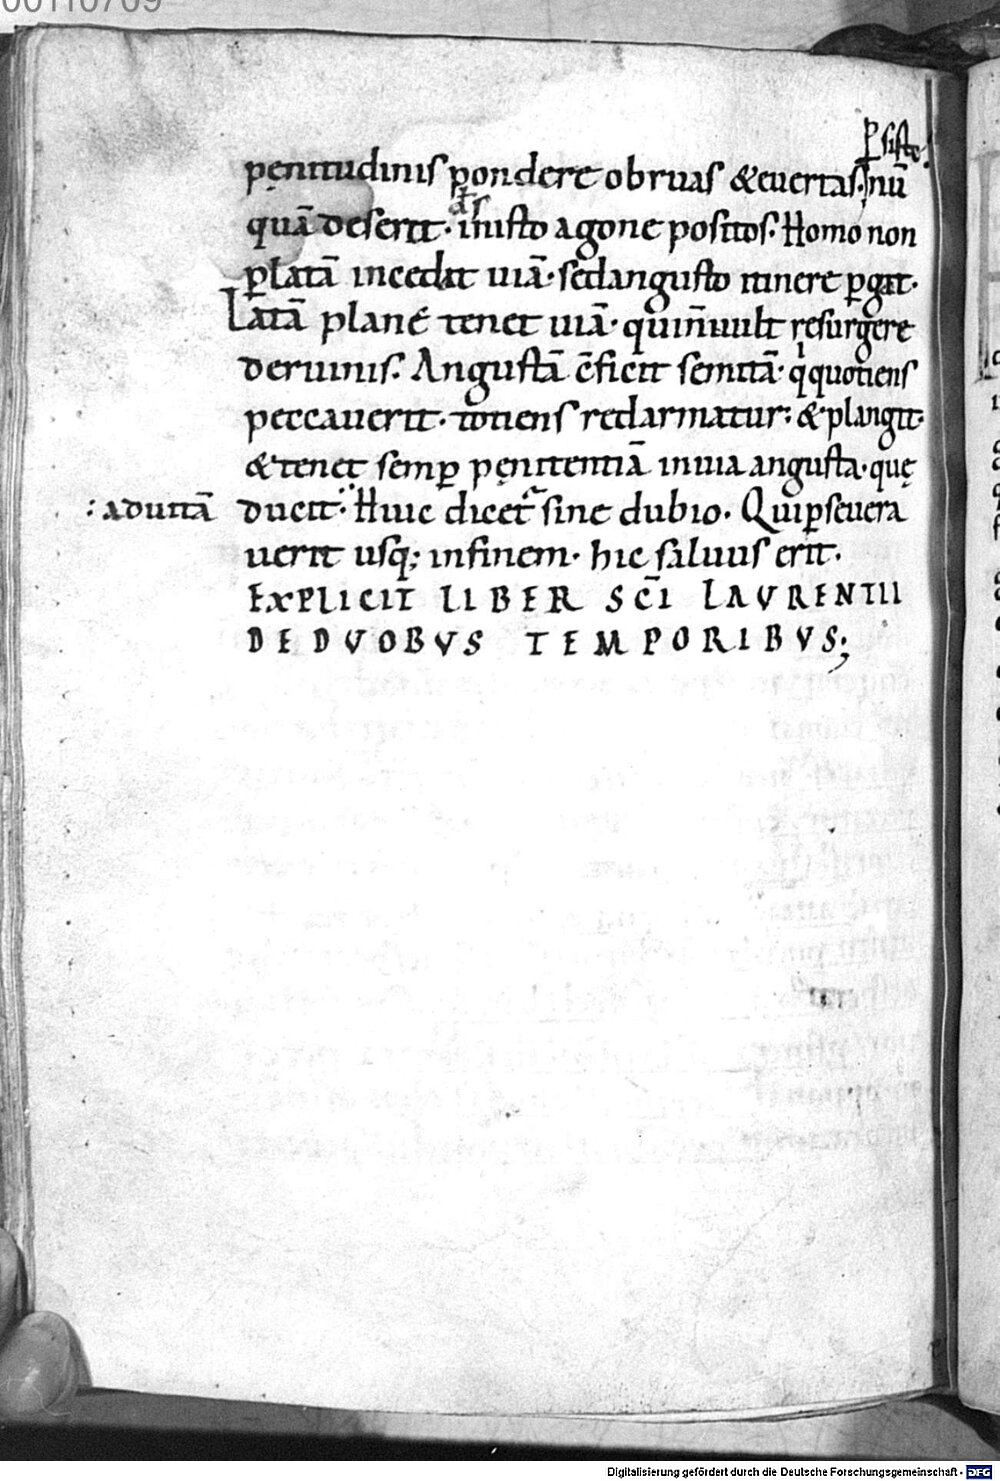 00110709
ꝑsiste.
pęnitudinis pondere obruas &euertas. nū
quā deserit. ds̄ in isto agone positos. Homo non
ꝑlatā incedat uiā. sed angusto itinere ꝑgat.
Latā plane tenet uiā. qui n̄ uult resurgere
deruinis. Angustā c̄ficit semitā. qi quotiens
peccauerit. totiens redarmatur: & plangit.
& tenet semꝑ pęnitentiā in uia angusta. quę
: aduitā ducit: Huic dicet᷑ sine dubio. Qui ꝑseuera
uerit usq; infinem. hic saluus erit.
EXPLICIT LIBER SC̄I LAVRENTII
DE DVOBVS TEMPORIBVS;
Digitalisierung gefördert durch die Deutsche Forschungsgemeinschaft - DFG